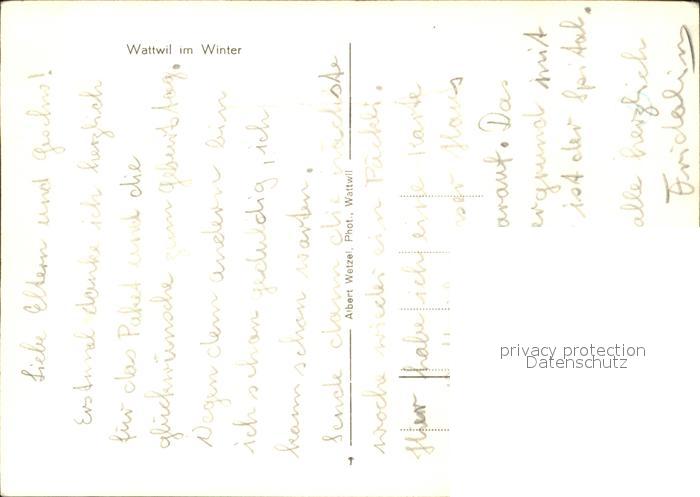 Wattwil im Winter
Albert Wetzel, Phot., Wattwil
Liebe Eltern und Geschw!
Erst und danke ich herzlich
für das Paket und die
glückwünsche zum geburtstag.
Wegen dem andern bin
ich schon geduldig, ich
kann schon warten.
Sende dann die nächste
woche wieder ein Päckli.
Hier habe ich eine Karte
ser Haus
arauf. Das
ergrund mit
ist der Spital.
alle herzlich
Fridolin
privacy protection
Datenschutz